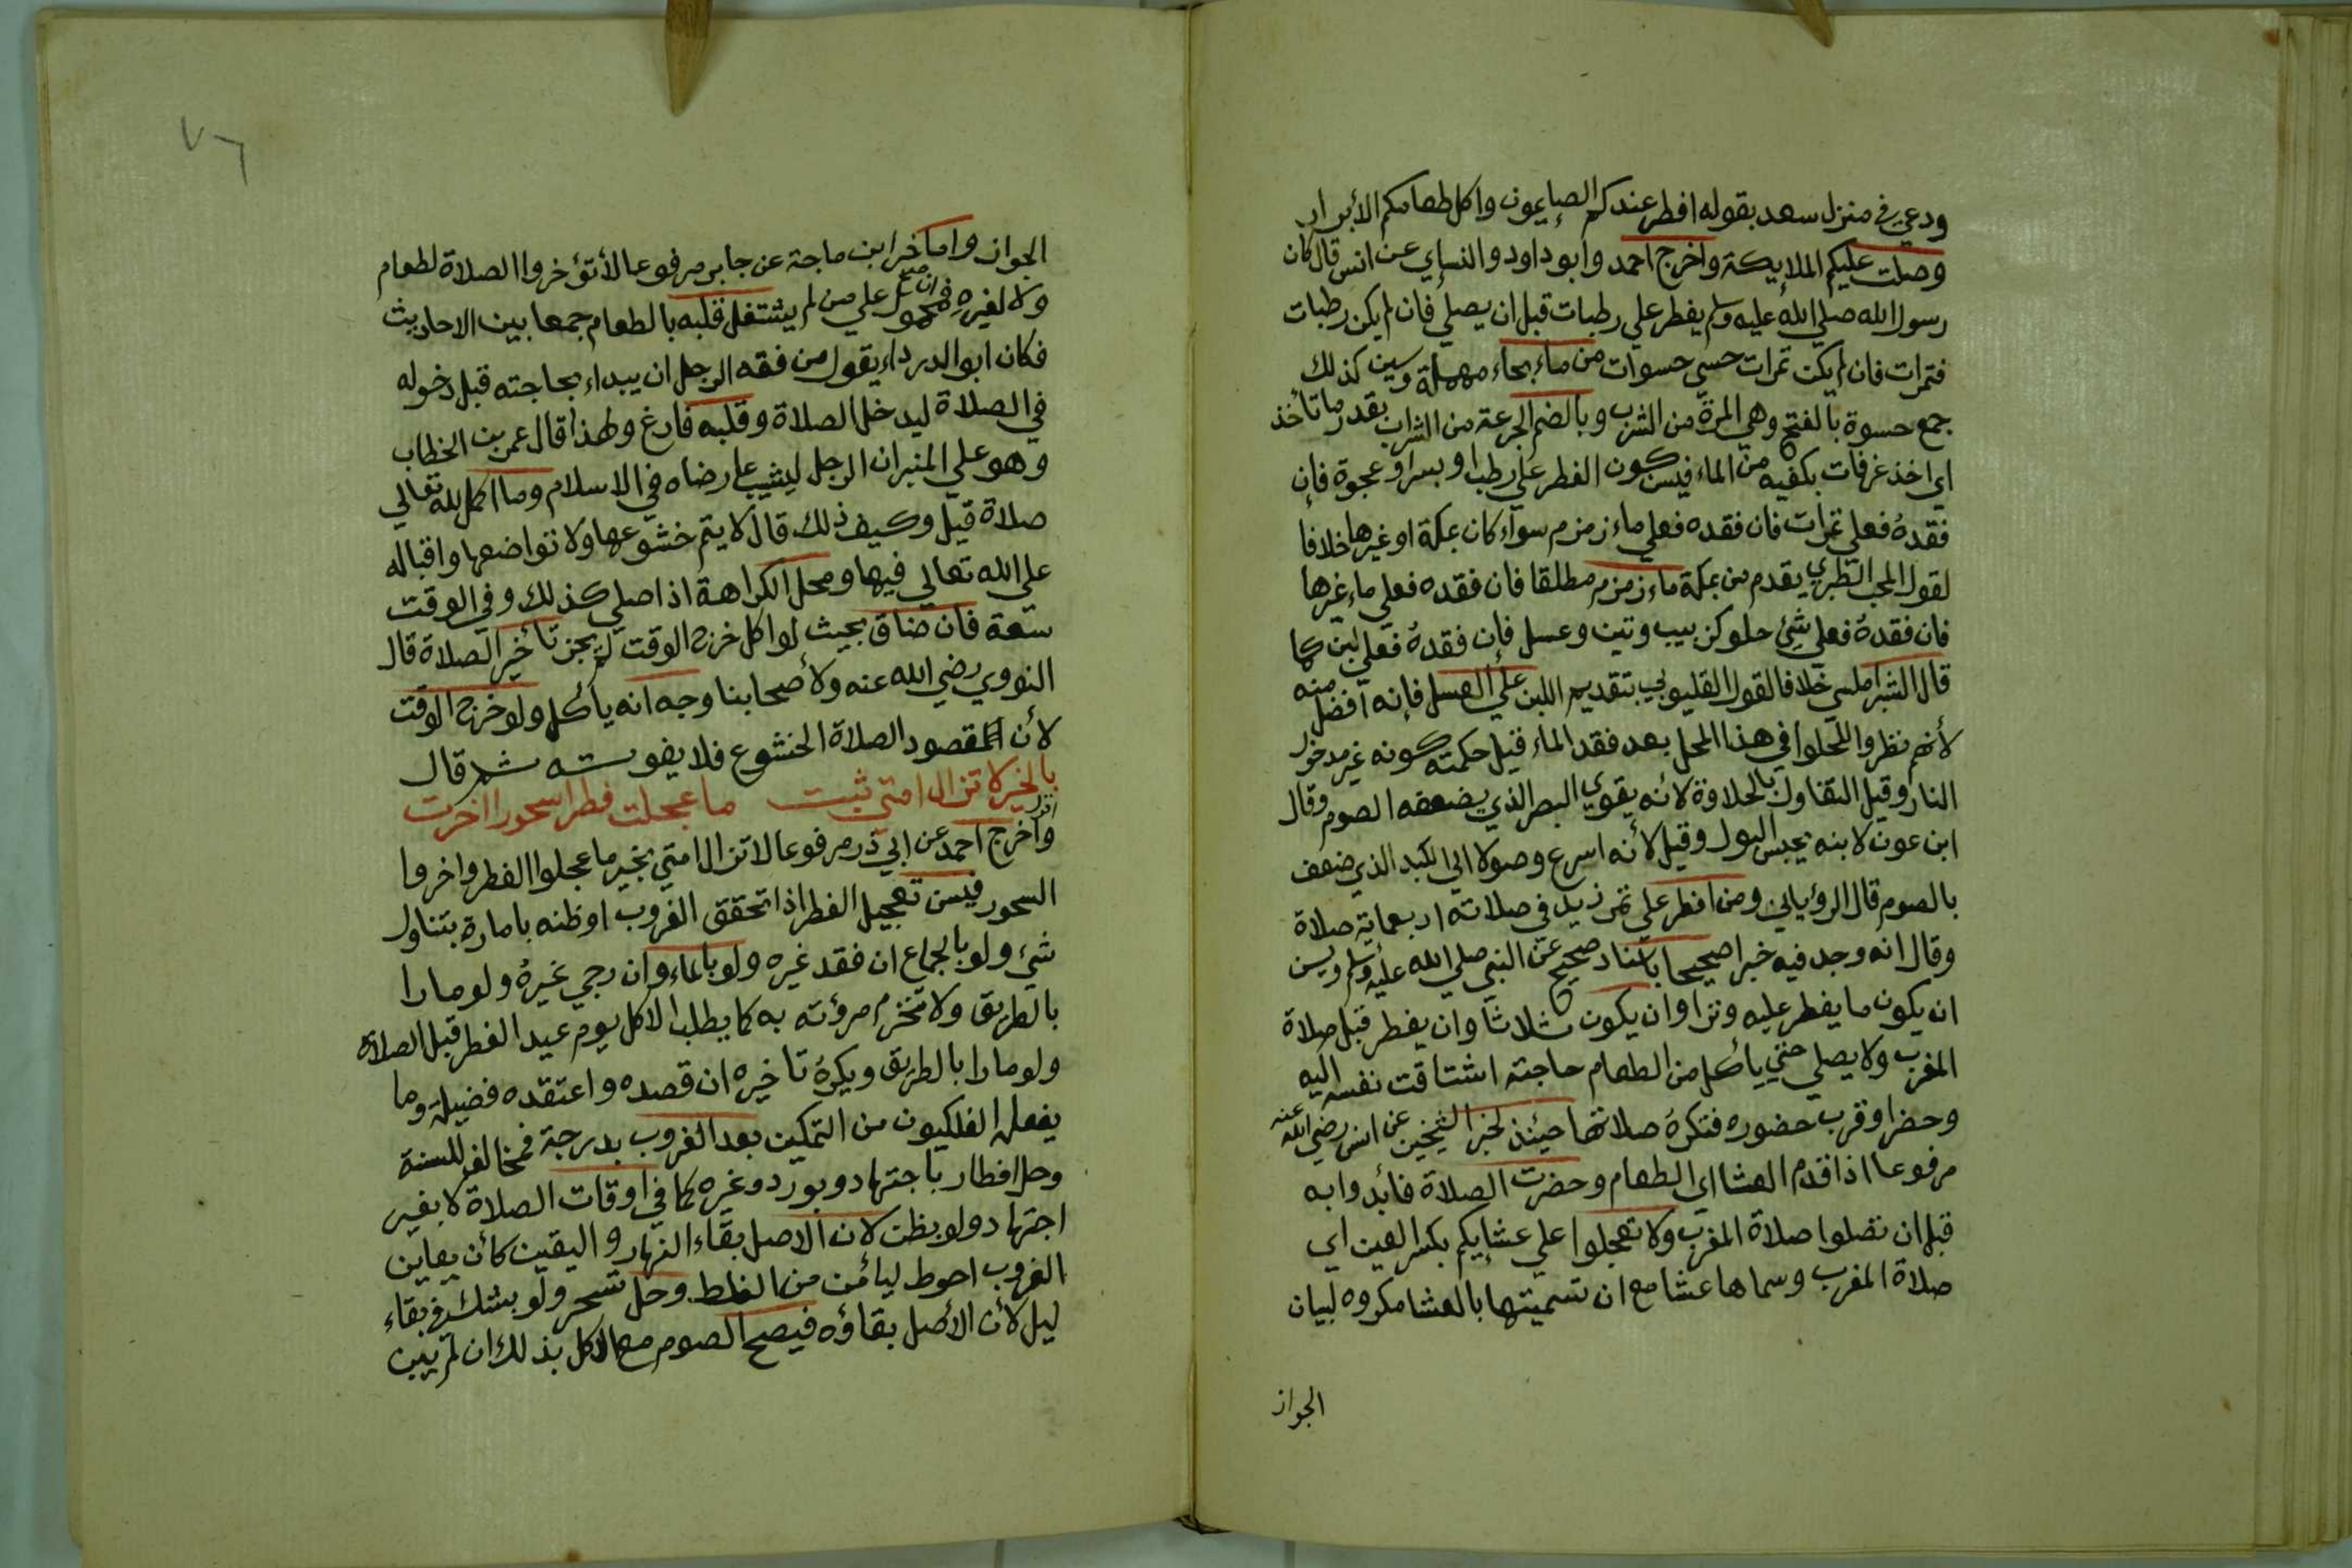 ودعي في منزل سعد بقوله افطر عندكم الصايمون واكل طعامكم الأبرار
وصلت عليكم الملايكة واخرج احمد وابو داود والنساي عن انس قال كان
رسول الله صلي الله عليه وسلم يفطر علي رطبات قبل ان يصلي فان لم يكن رطبات
فتمرات فان لم يكن تمرات حسي حسوات من ماء بحاء مهملة وسين كذلك
جمع حسوة بالفتح وهي المرة من الشرب وبالضم الجرعة من الشراب بقدر ما تأخذ
اي اخذ غرفات بكفيه من الماء فيسن كون الفطر علي رطب او بسر او عجوة فإن
فقده فعلي تمرات فان فقده فعلي ماء زمزم سواء كان بمكة او غيرها خلافا
لقول المحب الطبري يقدم من بمكة ماء زمزم مطلقا فان فقده فعلي ماء غيرها
فان فقدهُ فعلي شيء حلو كزبيب وتين وعسل فإن فقدهُ فعلي لبن كما
قال الشبراملسي خلافا لقول القليوبي بتقديم اللبن علي العسل فإنه أفضل منه
لأنهم نظروا للحلوا في هذا المحل بعد فقد الماء قيل حكمته كونه غير مدخول
النار وقيل التفاول بالحلاوة لأنه يقوي البصر الذي يضعفه الصوم وقال
ابن عون لابنه يحبس البول وقيل لأنه اسرع وصولا الي الكبد الذي ضعف
بالصوم قال الرؤياني ومن افطر علي تمر زيد في صلاته اربعماية صلاة
وقال انه وجد فيه خبرا صحيحا باسناد صحيح عن النبي صلي الله عليه وسلم ويسن
ان يكون ما يفطر عليه وترا وان يكون ثلاثا وان يفطر قبل صلاة
المغرب ولا يصلي حتي يأكل من الطعام حاجته اشتاقت نفسه اليه
وحضر او قرب حضوره فتكرهُ صلاتها حيئذ لخبر الشيخين عن انس رضي الله عنه
مرفوعا اذا قدم العشا اي الطعام وحضرت الصلاة فابدوا به
قبل ان تصلوا صلاة المغرب ولا تعجلوا علي عشايكم بكسر العين اي
صلاة المغرب وسماها عشا مع ان تسميتها بالعشا مكروه لبيان
الجواز
٧٦
الجواز واما خبر ابن ماجة عن جابر مرفوعا لا تؤخروا الصلاة لطعام
ولا لغيرهِ ان صح فمحمول علي من لم يشتغل قلبه بالطعام جمعا بين الاحاديث
فكان ابو الدرداء يقول من فقه الرجل ان يبداء بحاجته قبل دخوله
في الصلاة ليدخل الصلاة وقلبه فارغ ولهذا قال عمر بن الخطاب
وهو علي المنبر ان الرجل ليشيب عارضاه في الاسلام وما اكمل لله تعالي
صلاة قيل وكيف ذلك قال لا يتم خشوعها ولا تواضعها واقباله
علي الله تعالي فيها ومحل الكراهة اذا صلي كذلك وفي الوقت
سعة فان ضاق بحيث لو اكل خرج الوقت لم يجز تأخير الصلاة قال
النووي رضي الله عنه ولأصحابنا وجه انه يأكل ولو خرج الوقت
لأن المقصود الصلاة الخشوع فلا يفوته ثم قال
بالخير لا تزال امتي ثبت ما عجلت فطرا سحورا اخرت
واخرج احمد عن ابي ذر مرفوعا لا تزال امتي بخير ما عجلوا الفطر واخروا
السحور فيسن تعجيل الفطر اذا تحقق الغروب او ظنه بامارة بتناول
شيء ولو بالجماع ان فقد غيره ولو بالماء وان رجي غيرهُ ولو مارا
بالطريق ولا تنخرم مروئته به كما يطلب الاكل يوم عيد الفطر قبل الصلاة
ولو مارا بالطريق ويكرهُ تاخيره ان قصده واعتقده فضيلة وما
يفعله الفلكيون من التمكين بعد الغروب بدرجة فمخالف للسنة
وحل افطار باجتهاد وبورد وغيره كما في اوقات الصلاة لا بغير
اجتهاد ولو بظن لان الاصل بقاء النهار واليقين كأن يعاين
الغروب احوط ليأمن من الغلط وحل تسحر ولو بشك في بقاء
ليل لأن الأصل بقاؤه فيصح الصوم مع الاكل بذلك ان لم يبن